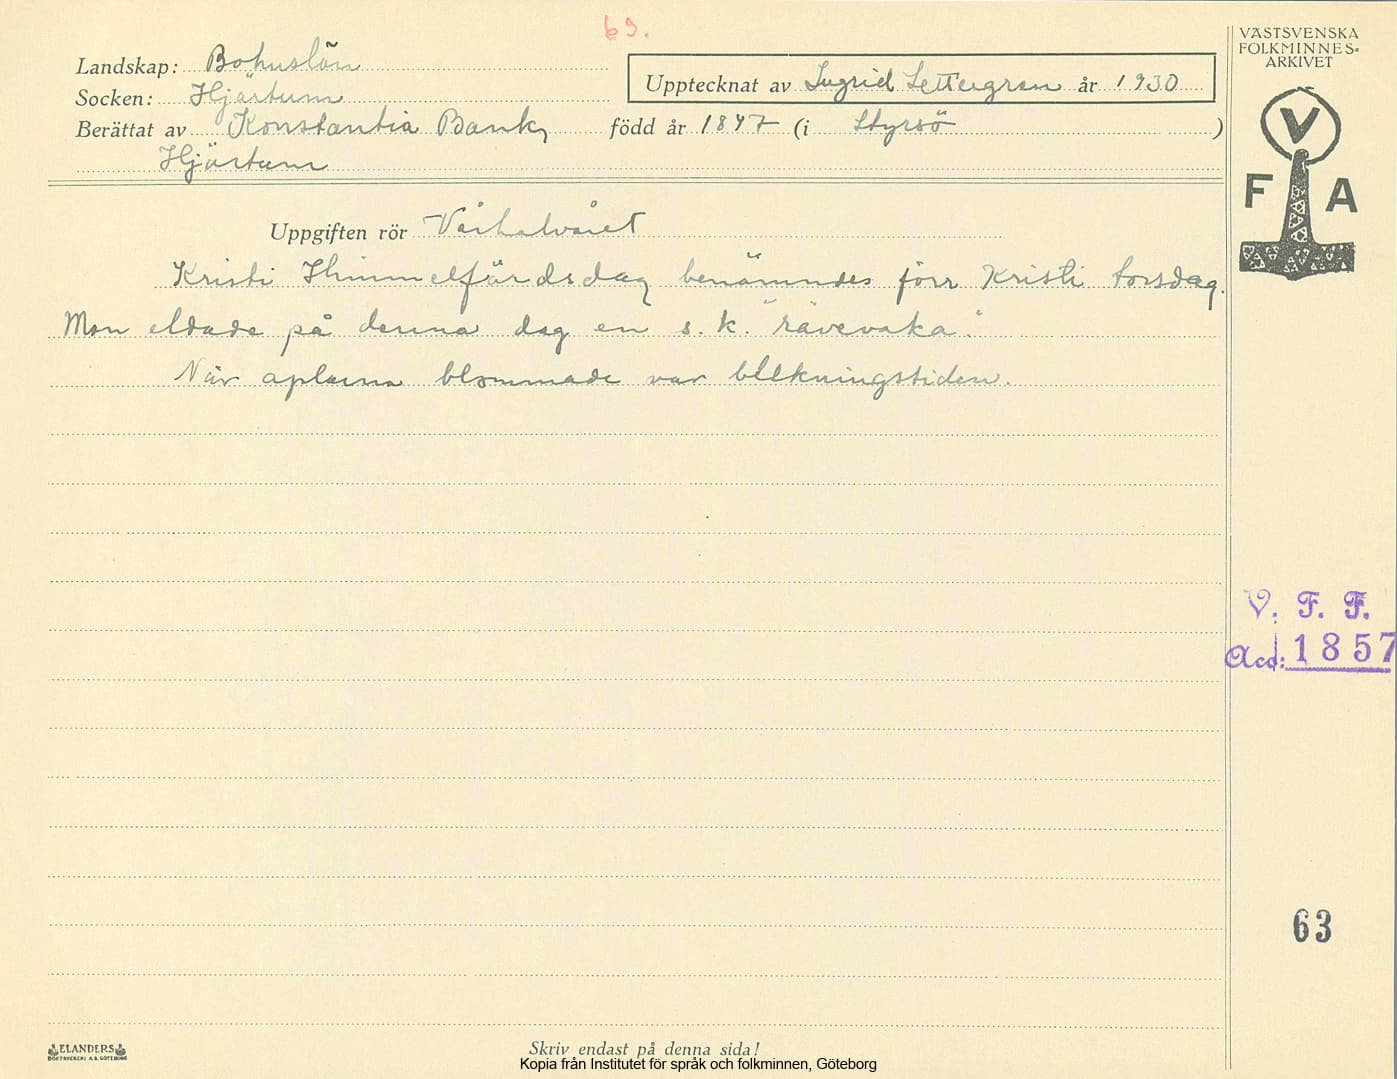 63.
VÄSTSVENSKA
FOLKMINNES-
ARKIVET
Landskap: Bohuslän
Socken: Hjärtum
Upptecknat av Ingrid Settergren år 1930
Berättat av Konstantia Bank, född år 1847 (i Styrsö )
Hjärtum
V
F A
Uppgiften rör Vårhalvåret
Kristi Himmelfärdsdag benämndes förr Kristi torsdag.
Man eldade på denna dag en s.k. "rävevaka."
När aplarna blommade var bleckningstiden.
V. F. F.
Acc: 1857
63
ELANDERS
BOKTRYCKERI A.B. GÖTEBORG
Skriv endast på denna sida!
Kopia från Institutet för språk och folkminnen, Göteborg